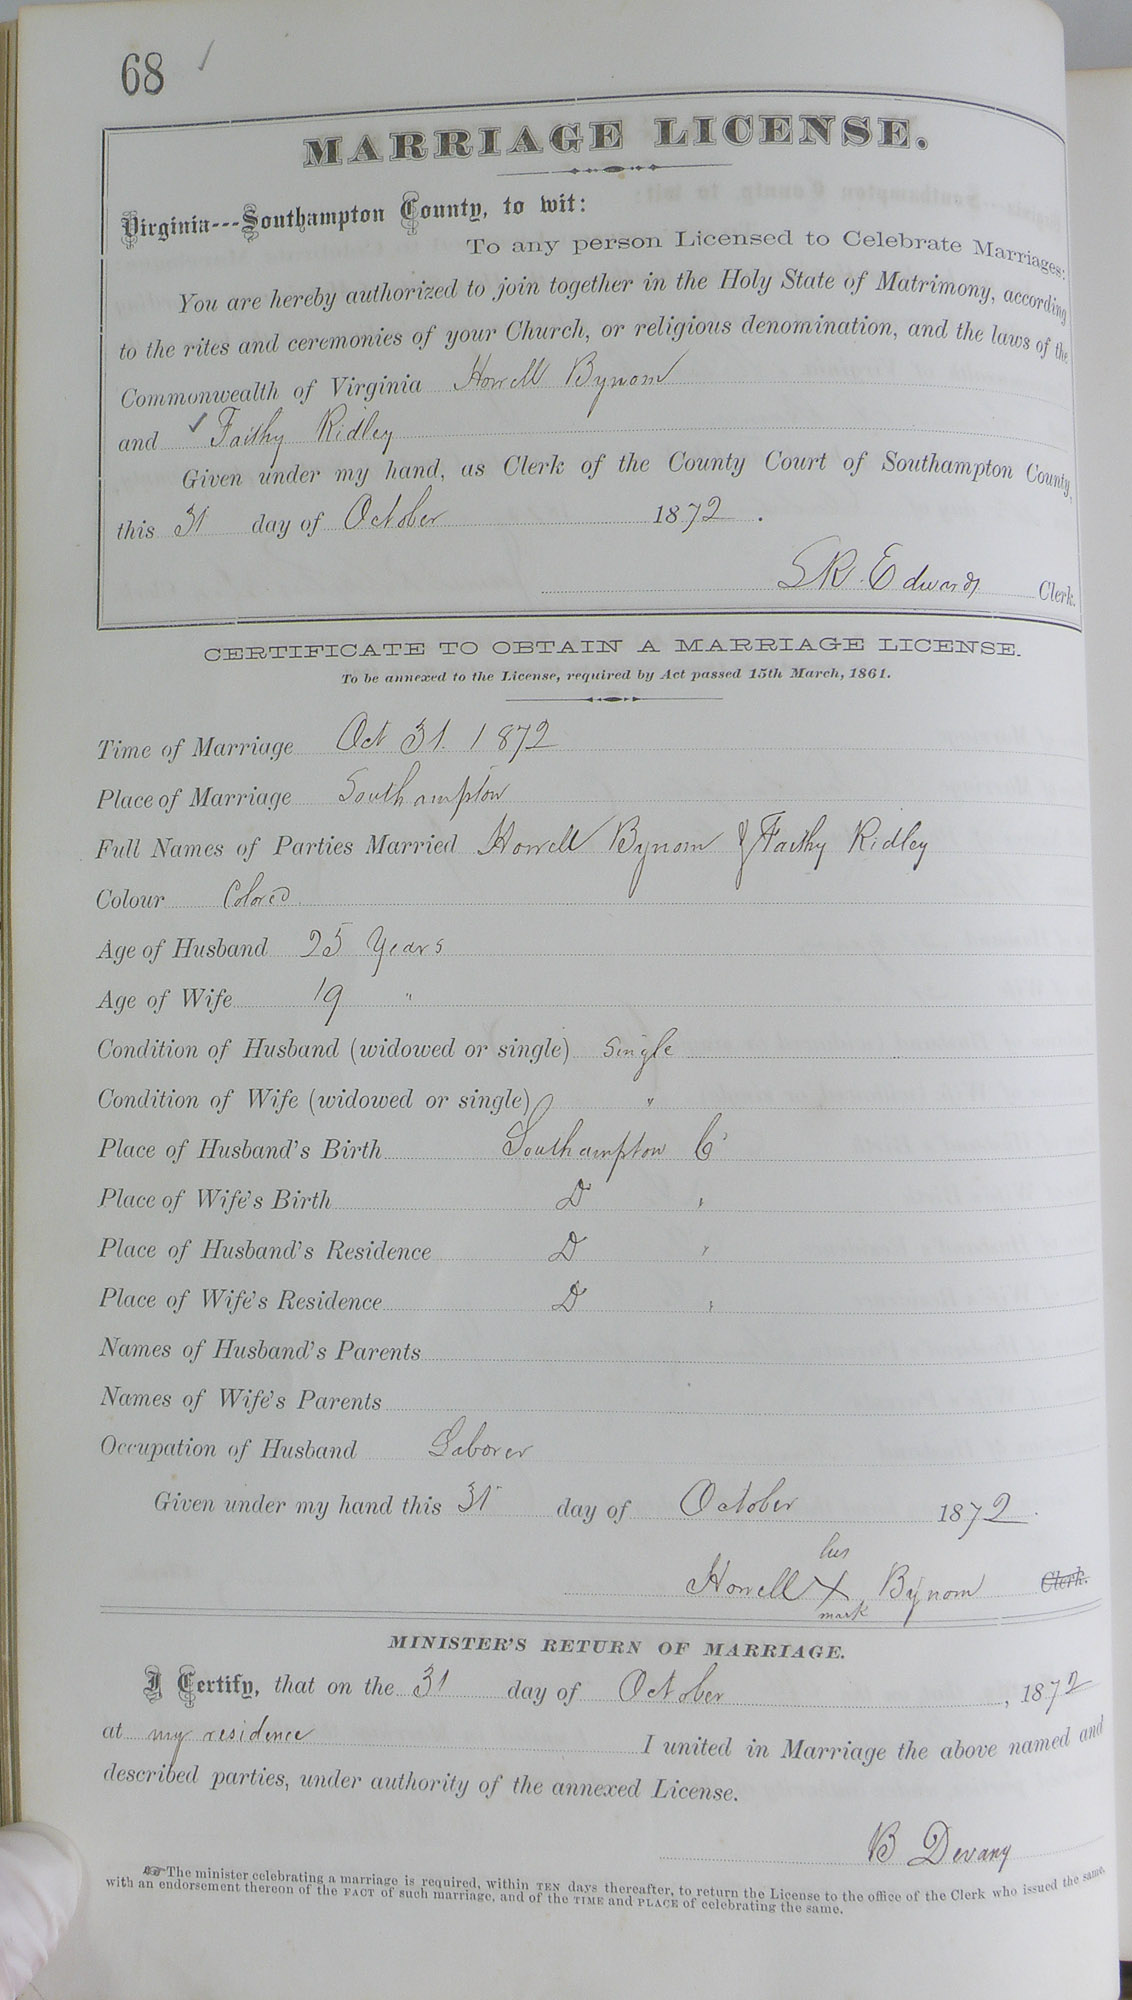 68 ✓
MARRIAGE LICENSE.
Virginia---Southampton County, to wit:
To any person Licensed to Celebrate Marriages:
You are hereby authorized to join together in the Holy State of Matrimony, according
to the rites and ceremonies of your Church, or religious denomination, and the laws of the
Commonwealth of Virginia Howell Bynom
and ✓ Faithy Ridley
Given under my hand, as Clerk of the County Court of Southampton County,
this 31 day of October 1872.
S R. Edwards Clerk.
CERTIFICATE TO OBTAIN A MARRIAGE LICENSE.
To be annexed to the License, required by Act passed 15th March, 1861.
Time of Marriage Oct 31. 1872
Place of Marriage Southampton
Full Names of Parties Married Howell Bynom & Faithy Ridley
Colour Colored
Age of Husband 25 Years
Age of Wife 19 "
Condition of Husband (widowed or single) Single
Condition of Wife (widowed or single) "
Place of Husband's Birth Southampton Co
Place of Wife's Birth Do "
Place of Husband's Residence Do "
Place of Wife's Residence Do "
Names of Husband's Parents
Names of Wife's Parents
Occupation of Husband Laborer
Given under my hand this 31 day of October 1872.
his
Howell X Bynom Clerk.
mark
MINISTER'S RETURN OF MARRIAGE.
I Certify, that on the 31 day of October, 1872
at my residence I united in Marriage the above named and
described parties, under authority of the annexed License.
B Devany
☞ The minister celebrating a marriage is required, within TEN days thereafter, to return the License to the office of the Clerk who issued the same,
with an endorsement thereon of the FACT of such marriage, and of the TIME and PLACE of celebrating the same.